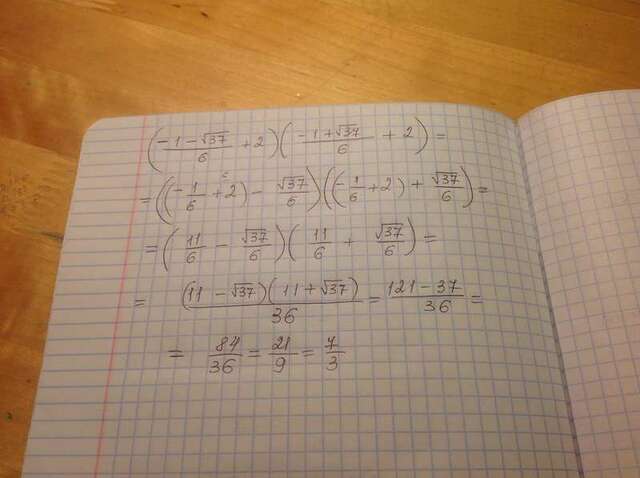 (\frac{-1-\sqrt{37}}{6} + 2)(\frac{-1+\sqrt{37}}{6} + 2) =
= ((\frac{-1}{6} + 2) - \frac{\sqrt{37}}{6})((\frac{-1}{6} + 2) + \frac{\sqrt{37}}{6}) =
= (\frac{11}{6} - \frac{\sqrt{37}}{6})(\frac{11}{6} + \frac{\sqrt{37}}{6}) =
= \frac{(11 - \sqrt{37})(11 + \sqrt{37})}{36} = \frac{121 - 37}{36} =
= \frac{84}{36} = \frac{21}{9} = \frac{7}{3}